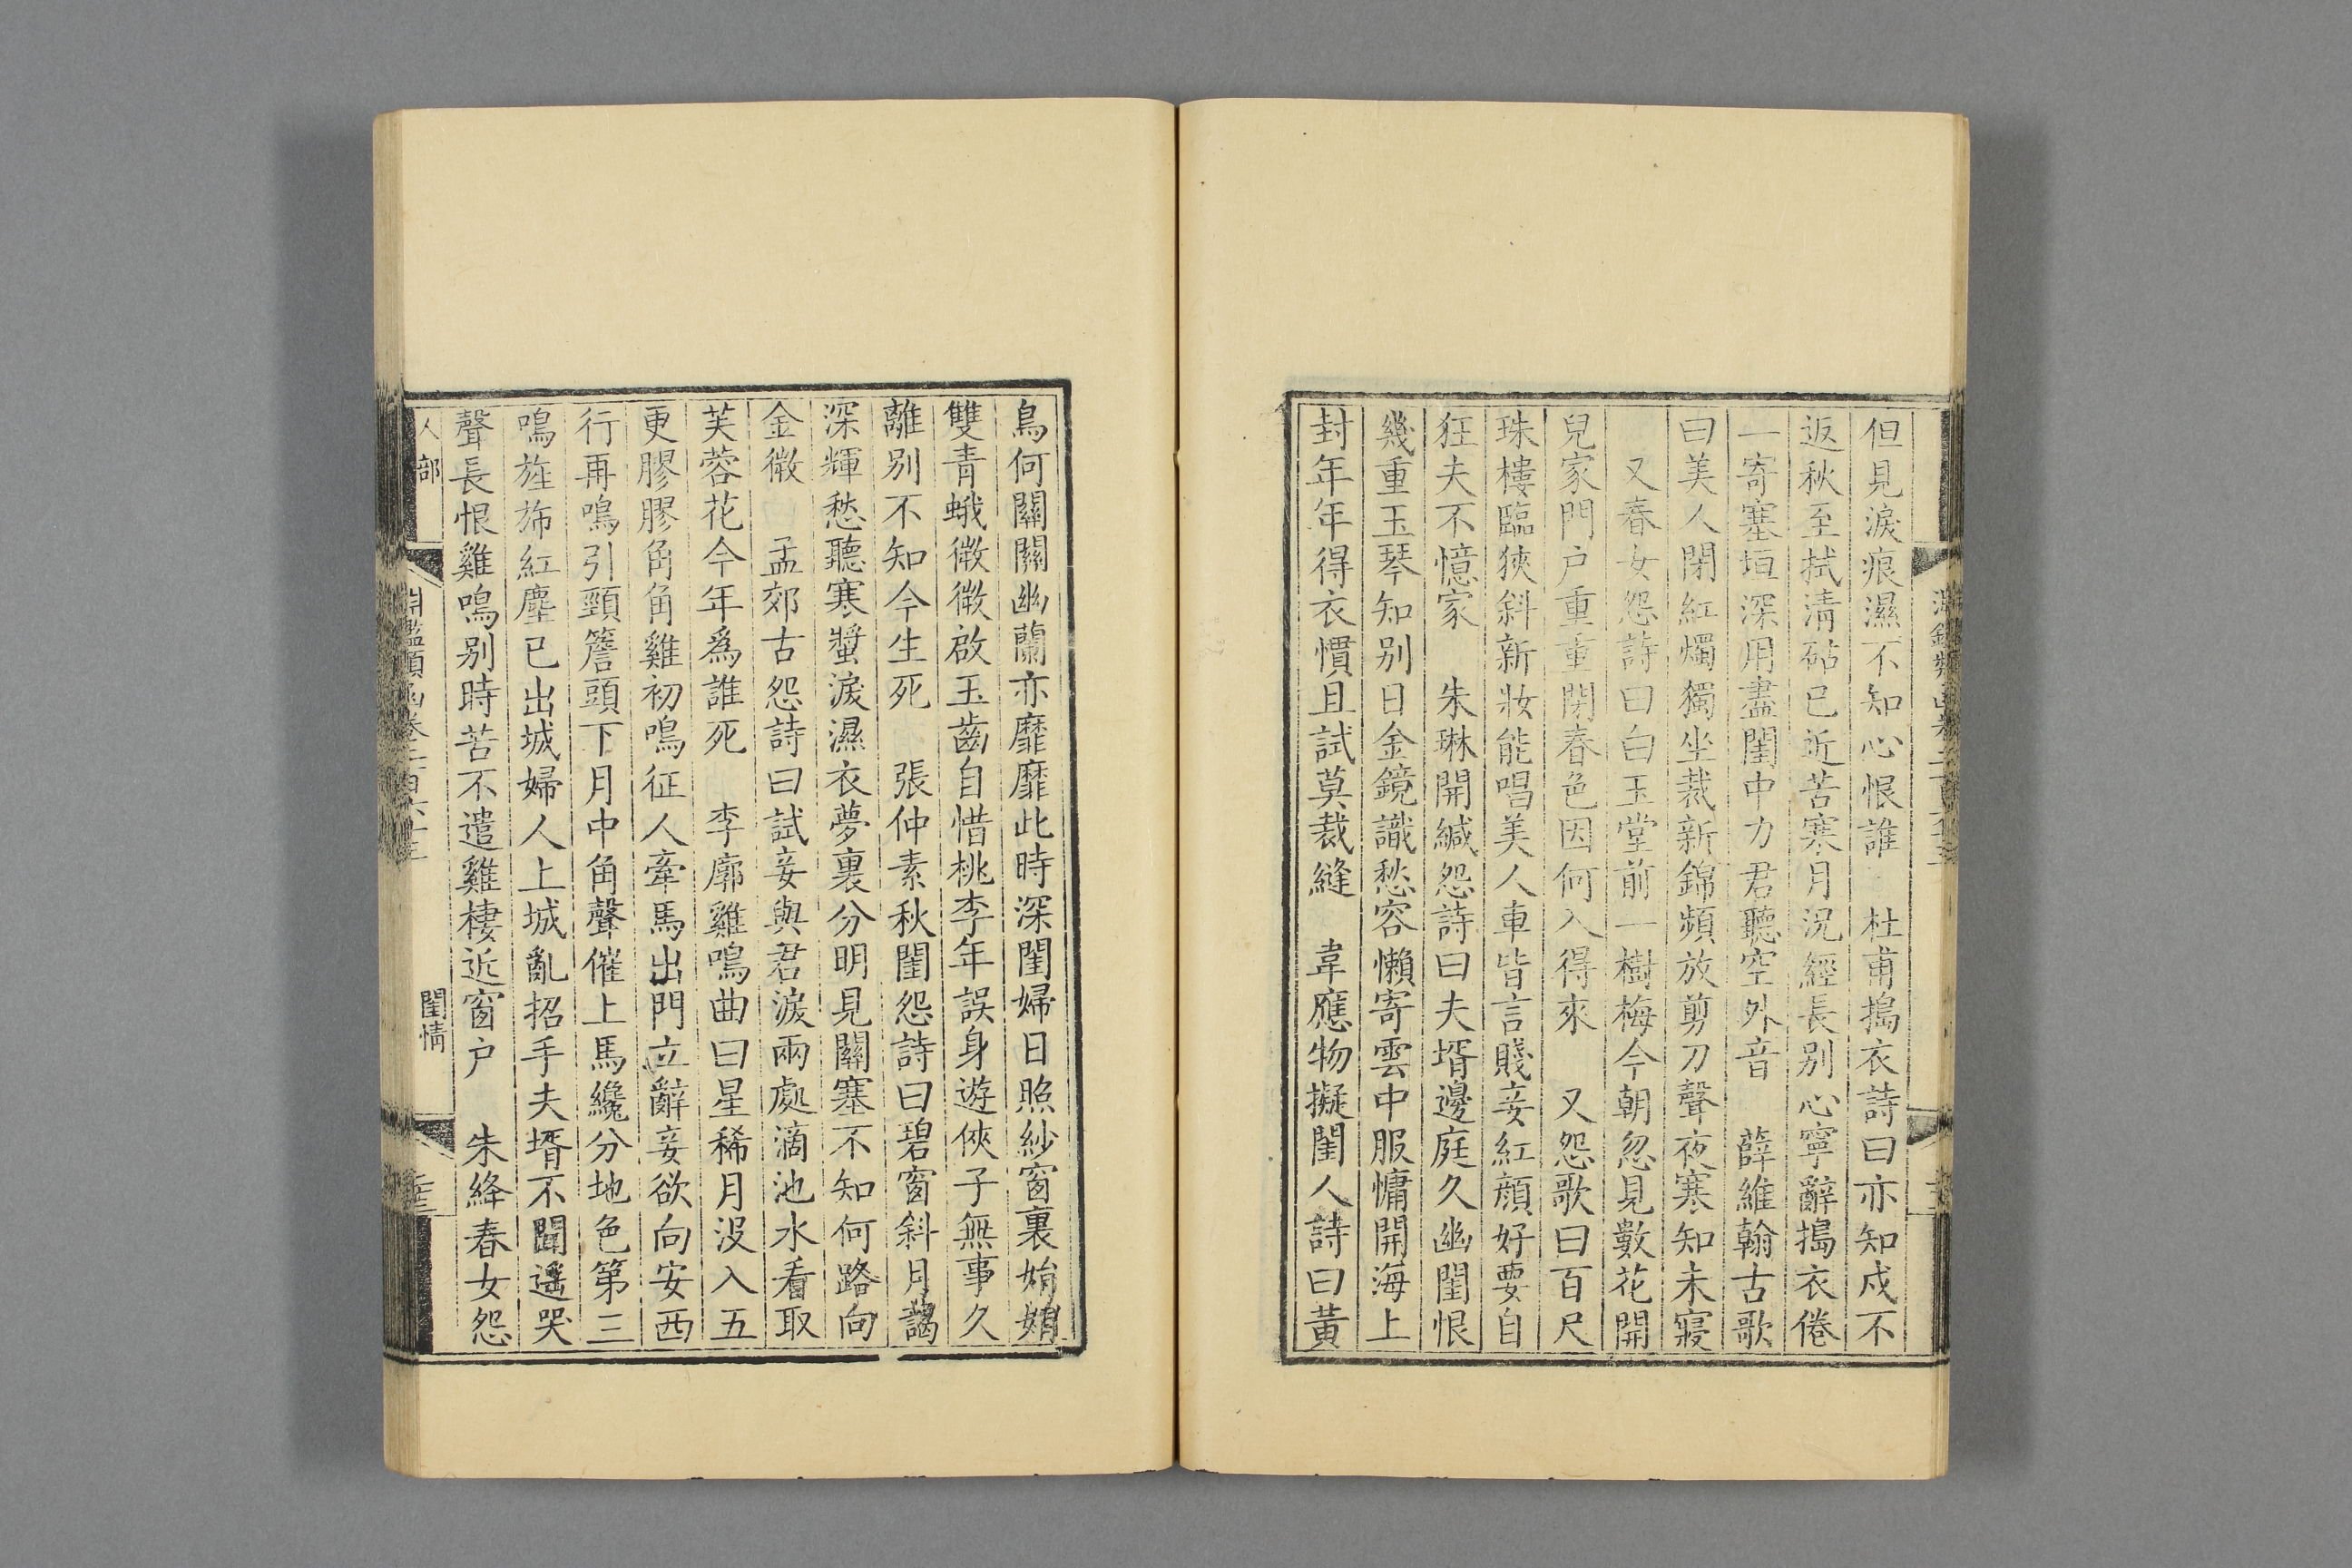 但見淚痕濕不知心恨誰　杜甫搗衣詩曰亦知戍不
返秋至拭清砧已近苦寒月況經長別心寧辭搗衣倦
一寄塞垣深用盡閨中力君聽空外音　薛維翰古歌
曰美人閉紅燭獨坐裁新錦頻放剪刀聲夜寒知未寢
又春女怨詩曰白玉堂前一樹梅今朝忽見數花開
兒家門户重重閉春色因何入得來　又怨歌曰百尺
珠樓臨狹斜新妝能唱美人車皆言賤妾紅顔好要自
狂夫不憶家　朱琳開緘怨詩曰夫壻邊庭久幽閨恨
幾重玉琴知別日金鏡識愁容懶寄雲中服慵開海上
封年年得衣慣且試莫裁縫　韋應物擬閨人詩曰黃
鳥何關關幽蘭亦靡靡此時深閨婦日照紗窗裏娟娟
雙青蛾微微啟玉齒自惜桃李年誤身遊俠子無事久
離别不知今生死　張仲素秋閨怨詩曰碧窗斜月藹
深輝愁聽寒螿淚濕衣夢裏分明見關塞不知何路向
金微　孟郊古怨詩曰試妾與君淚兩處滴池水看取
芙蓉花今年爲誰死　李廓雞鳴曲曰星稀月没入五
更膠膠角角雞初鳴征人牽馬出門立辭妾欲向安西
行再鳴引頸簷頭下月中角聲催上馬纔分地色第三
鳴旌斾紅塵已出城婦人上城亂招手夫壻不聞遥哭
聲長恨雞鳴别時苦不遣雞棲近窗户　朱絳春女怨
人部　淵鑑類函卷二百六十三　閨情